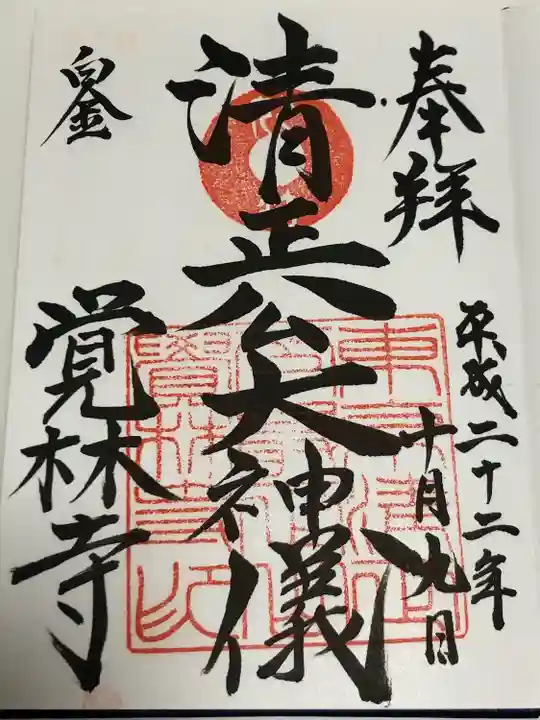 奉拝
平成二十二年
十月九日
清正公大神儀
白金
覚林寺